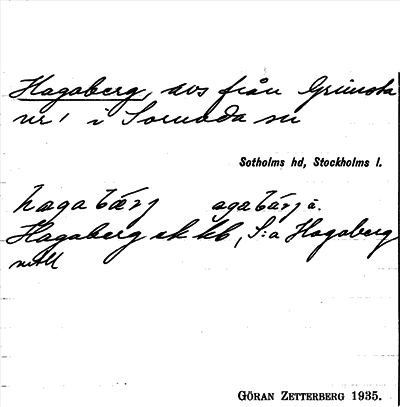 Hagaberg, avs från Grimsta
nr 1 i Sorunda sn
Sotholms hd, Stockholms l.
hagabærj agabærj ä.
Hagaberg ek kb, S:a Hagaberg
GÖRAN ZETTERBERG 1935.